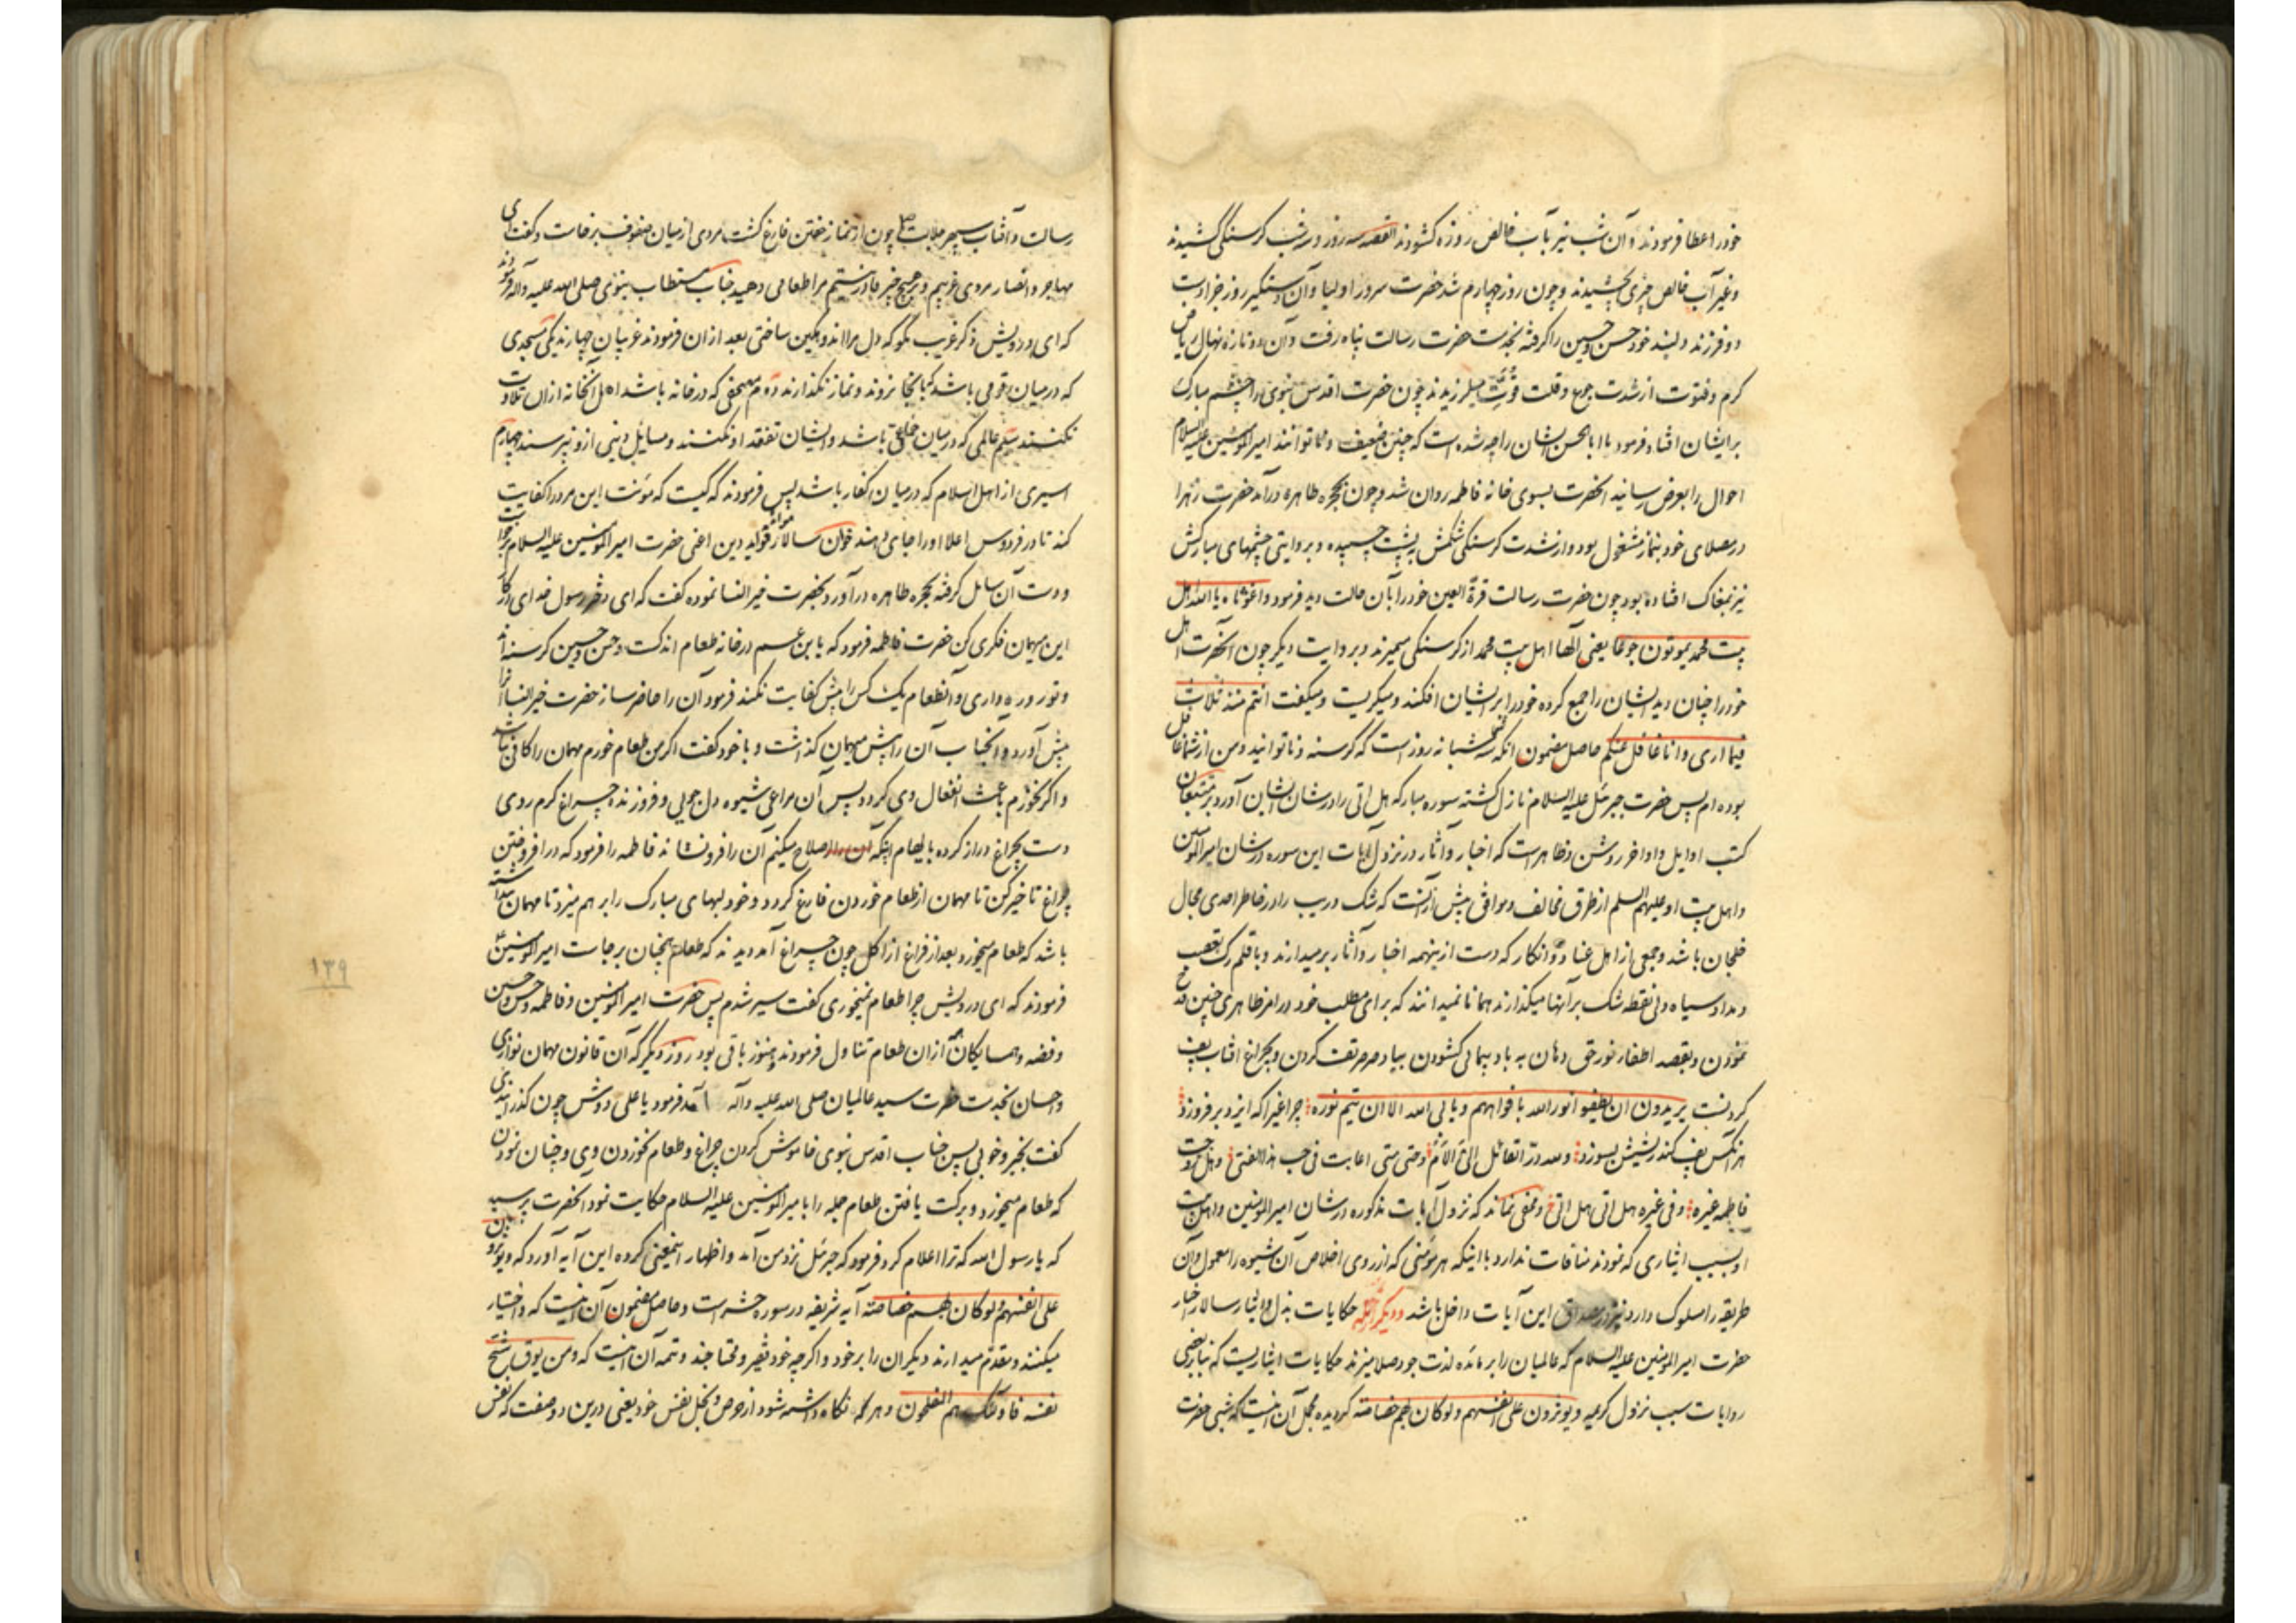 خود را عطا فرمودند و آن شب نیز بآب خالص روزه کشودند القصه سه روز و سه شب کرسنکی کشیدند
و غیر آب خالص چیزی نچشیدند و چون روز چهارم شد حضرت سرور اولیا و آن دستکیر روز جزا دست
دو فرزند دلبند خود حسن و حسین را کرفته بخدمت حضرت رسالت پناه رفت و آن دو تازه نهال ریاض
کرم و فتوت از شدت جوع و قلت قوت میلرزیدند چون حضرت اقدس نبوی را چشم مبارک
بر ایشان افتاد فرمود یا ابا الحسن ایشان را چه شده است که چنین ضعیف و ناتوانند امیرالمؤمنین علیه السلام
احوال را بعرض رسانید انحضرت بسوی خانه فاطمه روان شد و چون بحجره طاهره درآمد حضرت زهرا
در مصلای خود بنماز مشغول بود و از شدت کرسنکی شکمش به پشت چسپیده و بروایتی چشمهای مبارکش
نیز بمغاک افتاده بود چون حضرت رسالت قرة العین خود را بآن حالت دید فرمود واغوثاه یا الله اهل
بیت محمد یموتون جوعا یعنی الها اهل بیت محمد از کرسنکی میمیرند و بروایت دیکر چون آنحضرت اهل
خود را چنان دید ایشان را جمع کرده خود را بر ایشان افکند و میکریست و میکفت انتم منذ ثلاث
فیما اری و انا غافل عنکم حاصل مضمون انکه سه شبانه روز است که کرسنه و ناتوانید و من از شما غافل
بوده ام پس حضرت جبرئل علیه السلام نازل کشته سوره مبارکه هل اتی را در شان ایشان آورد بر متتبعان
کتب اوایل و اواخر روشن و ظاهر است که اخبار و آثار در نزول آیات این سوره در شان امیرالمؤمنین
و اهل بیت او علیهم السلم از طرق مخالف و موافق بیش از آنست که شک و ریب را در خاطر احدی مجال
خلجان باشد و جمعی از اهل عناد و انکار که دست از ینهمه اخبار و آثار برمیدارند و با قلم رک تعصب
و مداد سیاه دلی نقطه شک بر آنها میکذارند همانا نمیدانند که برای مطلب خود در امر ظاهری چنین قدح
نمودن و بقصد اطفاء نور حق دهان به باد پیمائی کشودن بباد صرصر تف کردن و بچراغ آفتاب پف
کردنست یریدون ان یطفوا نور الله بافواههم و یابی الله الا ان یتم نوره چراغیرا که ایزد برفروزد
هر آنکس پف کند ریشش بسوزد و لله در القائل الی م الی م و حتی متی اعاتب فی حب هذا الفتی و هل زوجت
فاطمه غیره و فی غیره هل اتی هل اتی و مخفی نماند که نزول آیات مذکوره در شان امیرالمؤمنین و اهل بیت
او بسبب ایثاری که نمودند منافات ندارد با اینکه هر مؤمنی که از روی اخلاص آن شیوه را معمول و آن
طریقه را مسلوک دارد نیز در مصداق این آیات داخل باشد و دیکر از جمله حکایات بذل و ایثار سالار اخیار
حضرت امیرالمؤمنین علیه السلام که عالمیان را بر مائده لذت جود صلا میزند حکایات ایثاریست که بنابر بعضی
روایات سبب نزول کریمه و یوثرون علی انفسهم و لو کان بهم خصاصة کردیده مجمل آن اینست که شبی حضرت
رسالت و آفتاب سپهر جلالت چون از نماز خفتن فارغ کشت مردی از میان صفوف برخاست و کفت ای
مهاجر و انصار مردی غریبم و بر هیچ چیز قادر نیستم مرا طعامی دهید جناب مستطاب نبوی صلی الله علیه و آله فرمودند
که ای درویش ذکر غریب مکو که دل مرا اندوهکین ساختی بعد از ان فرمودند غریبان چهارند یکی مسجدی
که در میان قومی باشد که بآنجا نروند و نماز نکذارند دوم مصحفی که در خانه باشد و اهل آنخانه ازان تلاوت
نکنند سیم عالمی که در میان خلقی باشد و ایشان تفقد او نکنند و مسایل دینی ازو نپرسند چهارم
اسیری از اهل اسلام که در میان کفار باشد پس فرمودند که کیست که مؤنت این مرد را کفایت
کند تا در فردوس اعلا او را جای دهند خوان سالار موائد فواید دین اعنی حضرت امیرالمؤمنین علیه السلام برخاست
و دست آن سایل کرفته بحجره طاهره درآورد بحضرت خیر النسا نموده کفت که ای دختر رسول خدا در کار
این میهمان فکری کن حضرت فاطمه فرمود که یا بن عم در خانه طعام اندکست و حسن و حسین کرسنه اند
و تو روزه داری و آنطعام یک کس را بیش کفایت نکند فرمود آن را حاضر ساز حضرت خیر النسا آنرا
پیش آورد و آنجناب آن را پیش میهمان کذاشت و با خود کفت اکر من طعام خورم مهمان را کافی نباشد
و اکر نخورم باعث انفعال وی کردد پس آن مراعی شیوه دل جویی و فروزنده چراغ کرم روی
دست بچراغ دراز کرده بایهام اینکه اصلاح میکنم آن را فرونشاند فاطمه را فرمود که در افروختن
چراغ تاخیر کن تا مهمان از طعام خوردن فارغ کردد و خود لبهای مبارک را بر هم میزد تا مهمان پنداشته
باشد که طعام میخورد بعد از فراغ از اکل چون چراغ آمد دیدند که طعام همچنان برجاست امیرالمؤمنین
فرمودند که ای درویش چرا طعام نمیخوری کفت سیر شدم پس حضرت امیرالمؤمنین و فاطمه و حسن و حسین
و فضه و همسایکان ازان طعام تناول فرمودند و هنوز باقی بود روز دیکر که آن قانون مهمان نوازی
و احسان بخدمت حضرت سید عالمیان صلی الله علیه و آله آمد فرمود یا علی دوش چون کذرانیدی
کفت بخیر و خوبی پس جناب اقدس نبوی خاموش کردن چراغ و طعام نخوردن وی و چنان نمودن
که طعام میخورد و برکت یافتن طعام جمله را با امیرالمؤمنین علیه السلام حکایت نمود انحضرت پرسید
که یا رسول الله که ترا اعلام کرد فرمود که جبرئل نزد من آمد و اظهار اینمعنی کرده این آیه آورد که و یوثرون
علی انفسهم و لو کان بهم خصاصة آیه شریفه در سوره حشر است و حاصل مضمون آن اینست که و اختیار
میکنند و مقدم میدارند دیکران را بر خود و اکرچه خود فقیر و محتاجند و تتمه آن اینست که و من یوق شح
نفسه فاولئک هم المفلحون و هر که نکاه داشته شود از حرص و بخل نفس خود یعنی درین دو صفت که نفس
۱۳۹